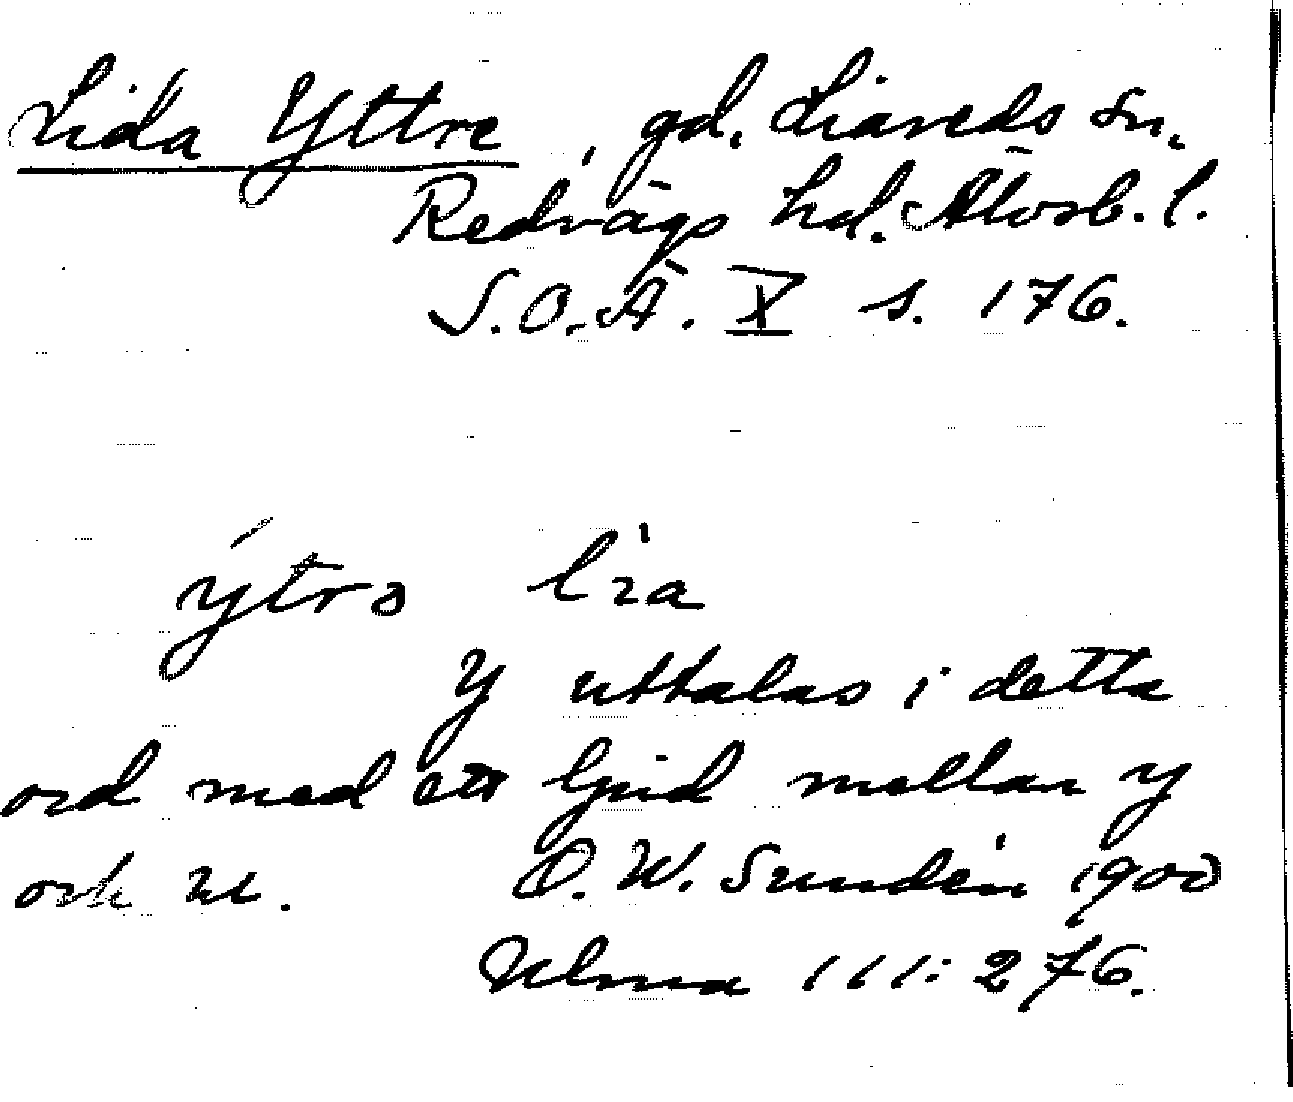 Lida Yttre, gd. Liareds sn.
Redvägs hd. Älvsb. l.
S.O.Ä. X s. 176.
ýtrɜ lìa
y uttalas i detta
ord med ett ljud mellan y
och u. D. W. Sundén 1900
Ulma 111:276.